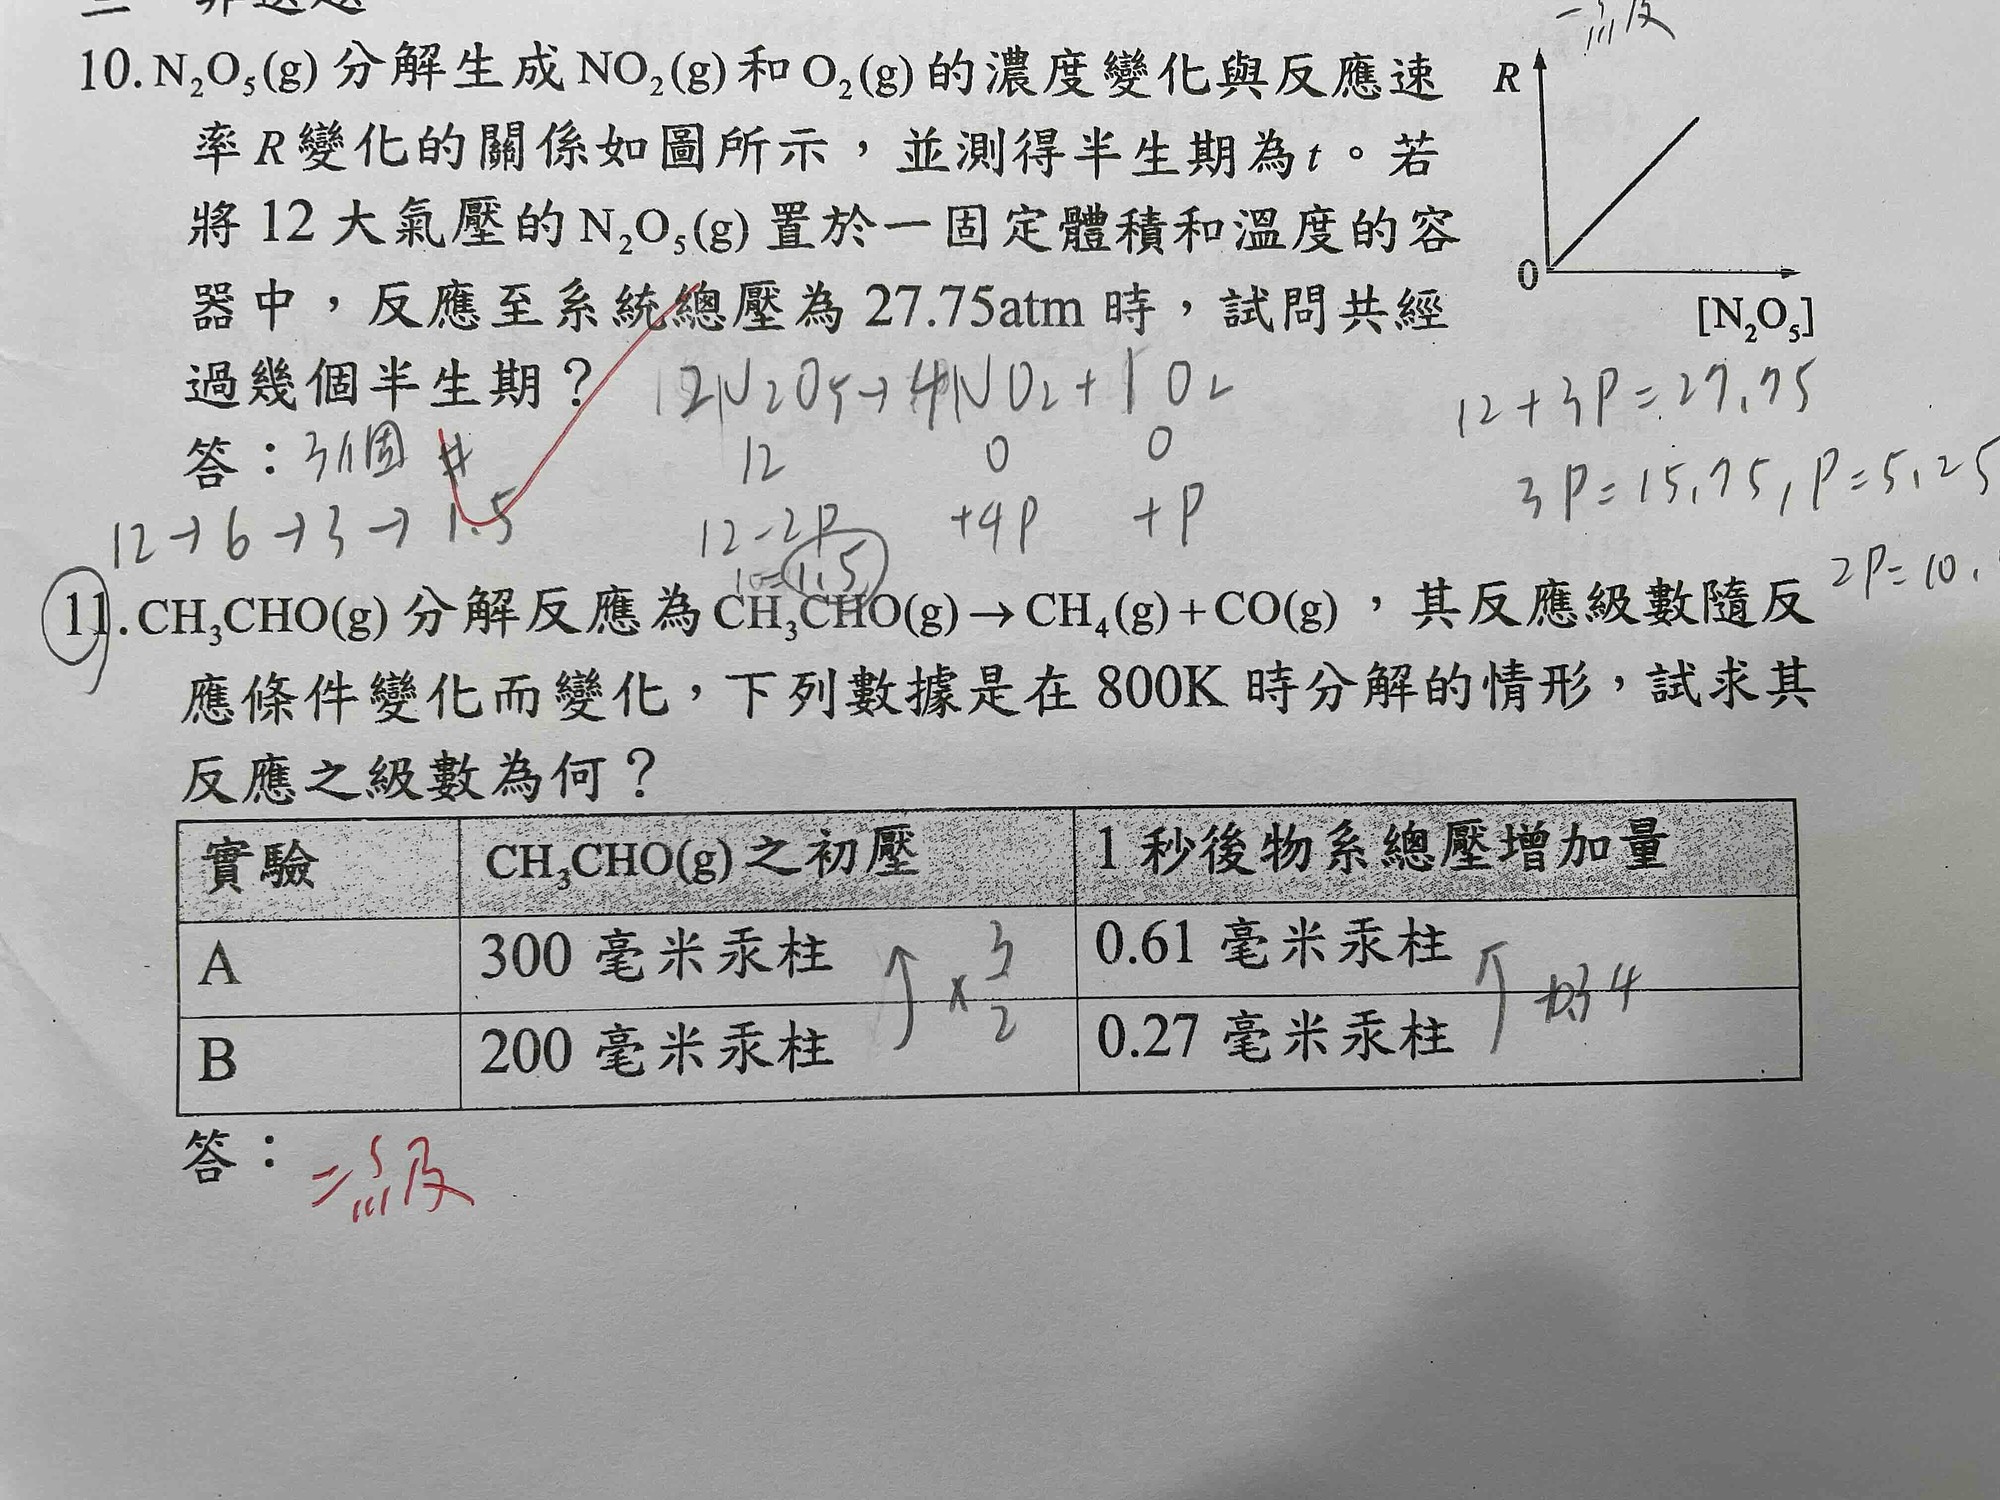 一級
10. N₂O₅(g) 分解生成 NO₂(g) 和 O₂(g) 的濃度變化與反應速
率 R 變化的關係如圖所示，並測得半生期為 t。若
將 12 大氣壓的 N₂O₅(g) 置於一固定體積和溫度的容
器中，反應至系統總壓為 27.75atm 時，試問共經
過幾個半生期？
R
0
[N₂O₅]
2N₂O₅→4NO₂+1O₂
12 0 0
12-2P +4P +P
=1.5
12+3P=27.75
3P=15.75, P=5.25
2P=10.
答：3個 #
12→6→3→1.5
11. CH₃CHO(g) 分解反應為 CH₃CHO(g)→CH₄(g)+CO(g)，其反應級數隨反
應條件變化而變化，下列數據是在 800K 時分解的情形，試求其
反應之級數為何？
實驗 CH₃CHO(g) 之初壓 1 秒後物系總壓增加量
A 300 毫米汞柱 0.61 毫米汞柱
B 200 毫米汞柱 0.27 毫米汞柱
×3/2
答：二級